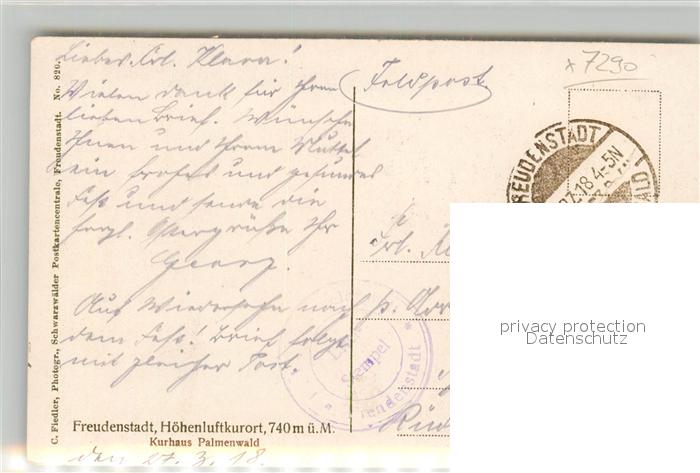 Liebes Frl. Klara!
Vielen Dank für Ihren
lieben Brief. Wünsche
Ihnen und Ihrem Mutterl
ein frohes und gesundes
Fest und sende die
herzl. Ostergrüße Ihr
Georg.
Auf Wiedersehn nach
dem Fest! Brief folgt
mit gleicher Post.
Feldpost
x 7290
FREUDENSTADT
27.3.18 4-5N
Frl.
Stempel
Freudenstadt
C. Fiedler, Photogr., Schwarzwälder Postkartencentrale, Freudenstadt. No. 820.
Freudenstadt, Höhenluftkurort, 740 m ü.M.
Kurhaus Palmenwald
den 27. 3. 18.
privacy protection
Datenschutz